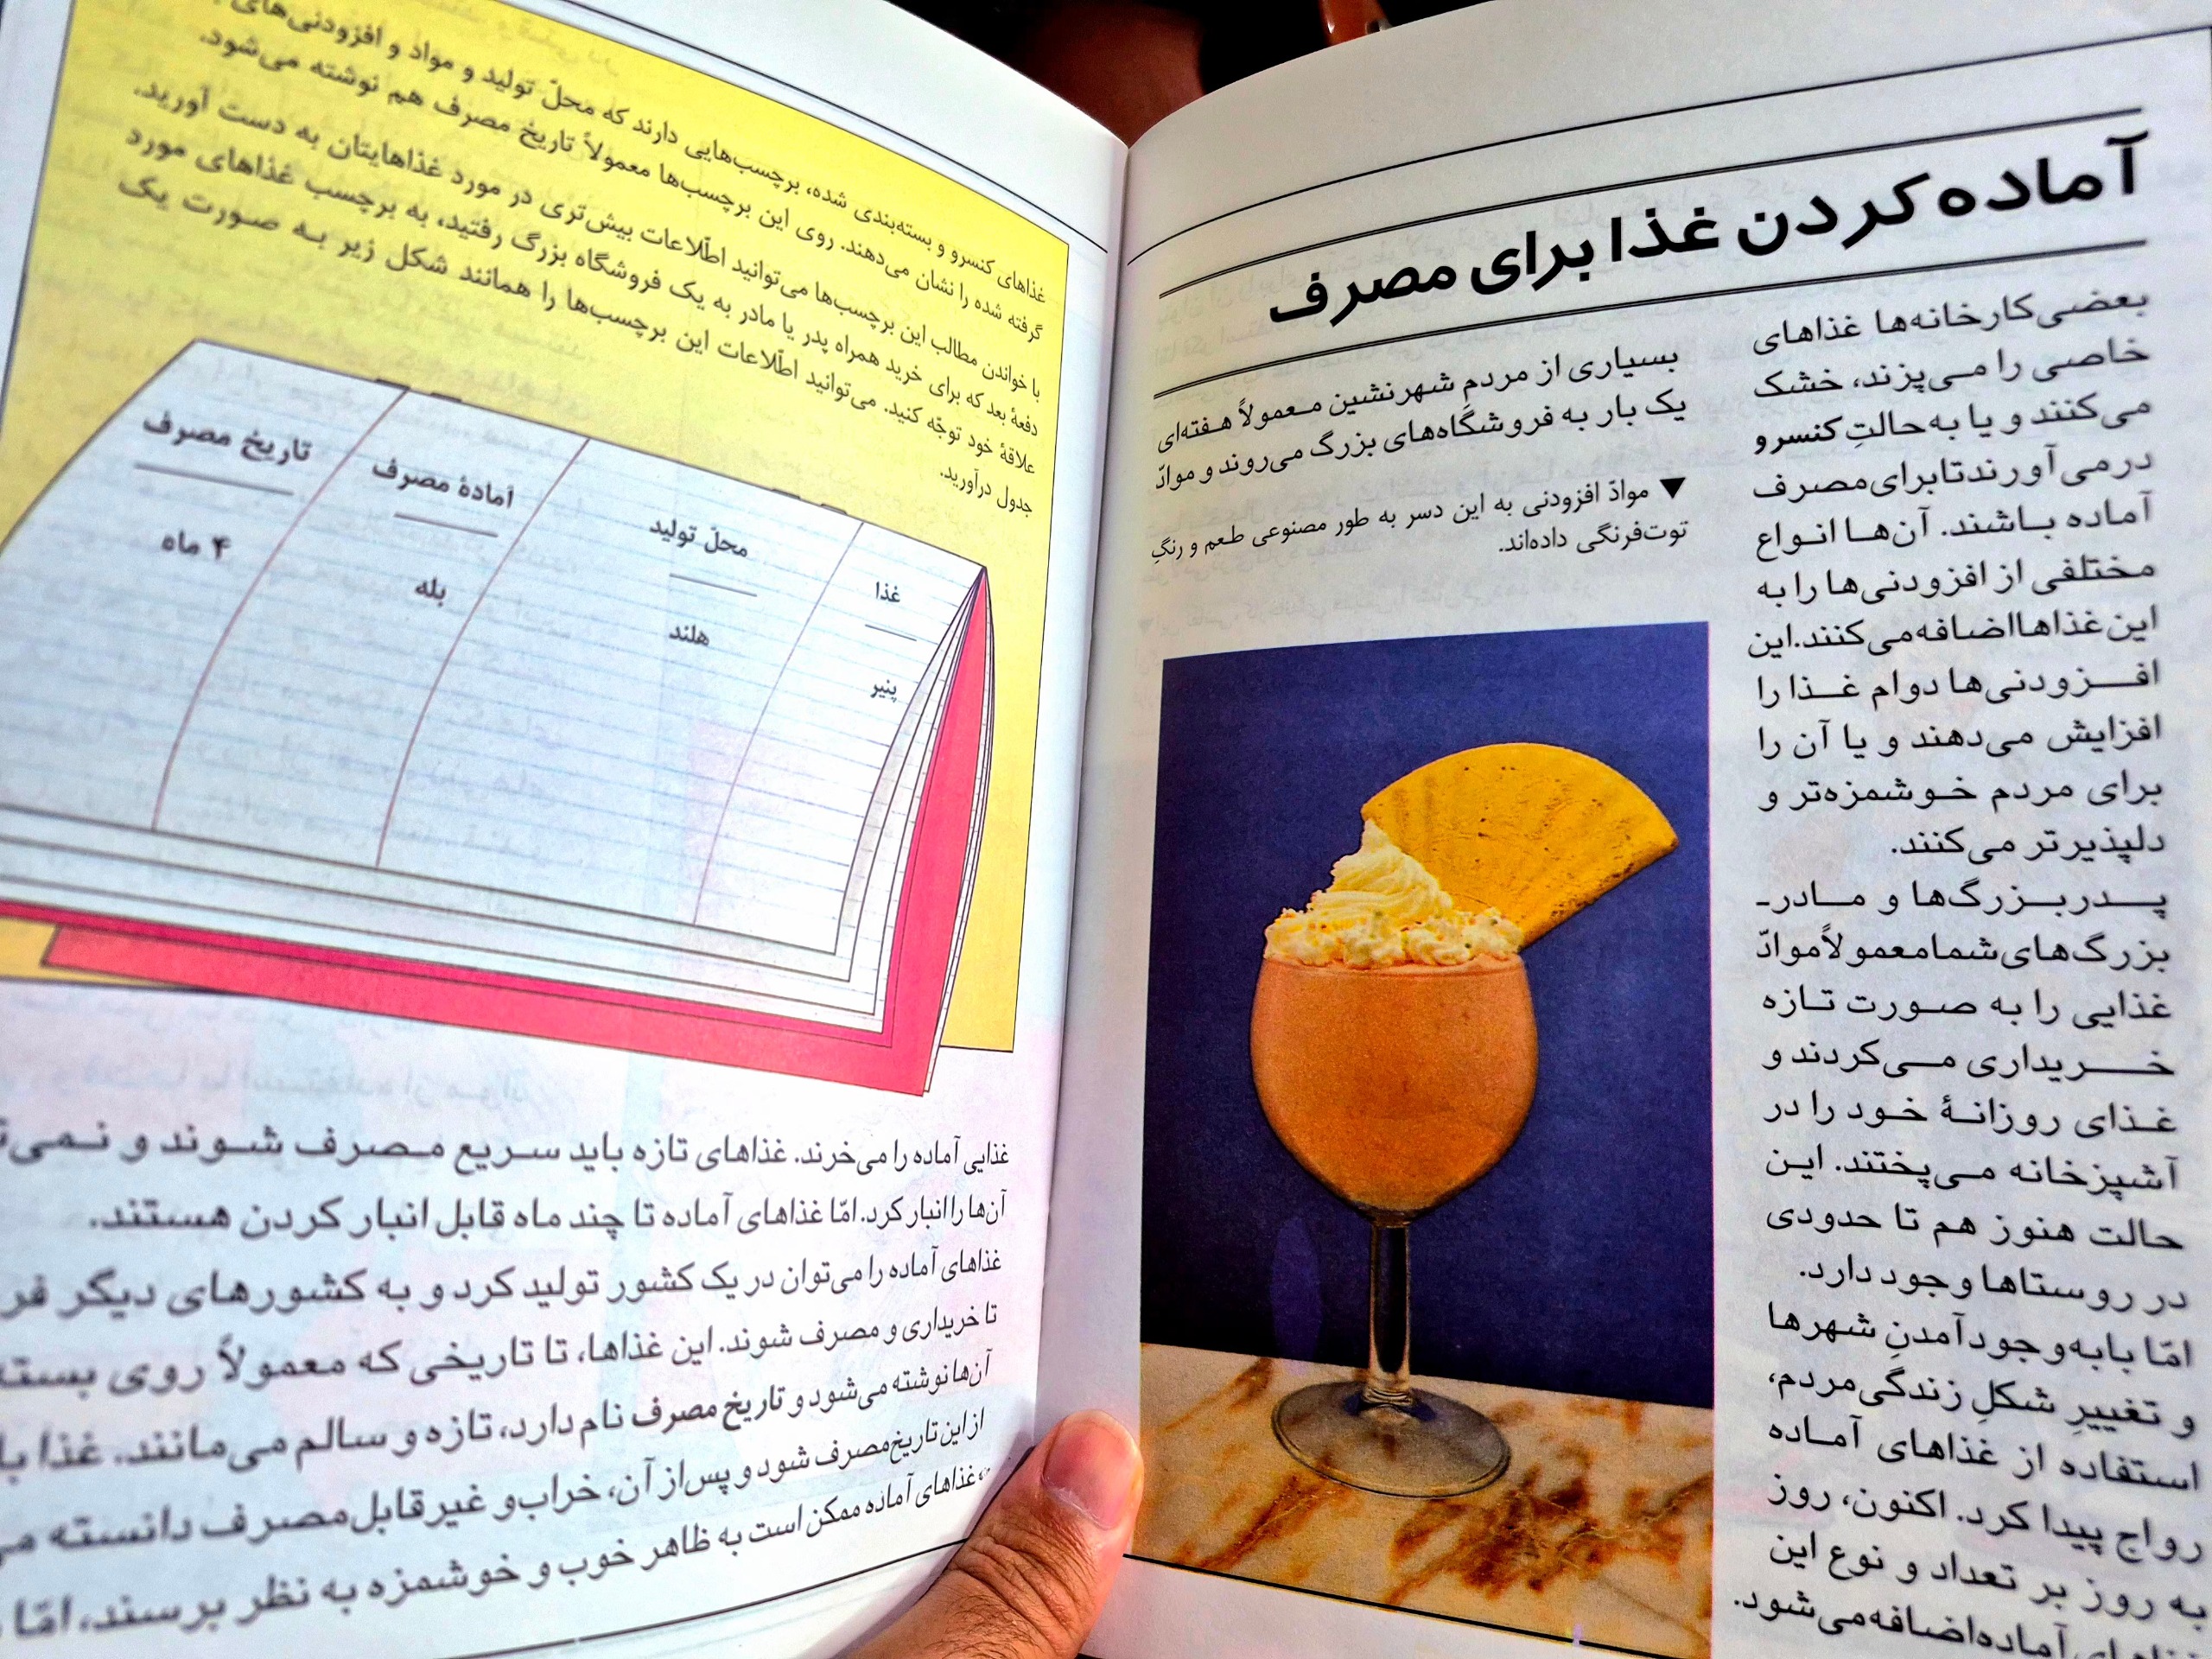 آماده کردن غذا برای مصرف
بعضی کارخانه‌ها غذاهای
خاصی را می‌پزند، خشک
می‌کنند و یا به حالتِ کنسرو
درمی‌آورند تا برای مصرف
آماده باشند. آن‌ها انواع
مختلفی از افزودنی‌ها را به
این غذاها اضافه می‌کنند. این
افزودنی‌ها دوام غذا را
افزایش می‌دهند و یا آن را
برای مردم خوشمزه‌تر و
دلپذیرتر می‌کنند.
پدربزرگ‌ها و مادر-
بزرگ‌های شما معمولاً موادّ
غذایی را به صورت تازه
خریداری می‌کردند و
غذای روزانهٔ خود را در
آشپزخانه می‌پختند. این
حالت هنوز هم تا حدودی
در روستاها وجود دارد.
امّا با به‌وجود آمدنِ شهرها
و تغییرِ شکلِ زندگی مردم،
استفاده از غذاهای آماده
رواج پیدا کرد. اکنون، روز
به روز بر تعداد و نوع این
غذاهای آماده اضافه می‌شود.
بسیاری از مردمِ شهرنشین معمولاً هفته‌ای
یک بار به فروشگاه‌های بزرگ می‌روند و موادّ
▼ موادّ افزودنی به این دسر به طور مصنوعی طعم و رنگِ
توت‌فرنگی داده‌اند.
غذاهای کنسرو و بسته‌بندی شده، برچسب‌هایی دارند که محلّ تولید و مواد و افزودنی‌های
گرفته شده را نشان می‌دهند. روی این برچسب‌ها معمولاً تاریخ مصرف هم نوشته می‌شود.
با خواندن مطالب این برچسب‌ها می‌توانید اطّلاعات بیش‌تری در مورد غذاهایتان به دست آورید.
دفعهٔ بعد که برای خرید همراه پدر یا مادر به یک فروشگاه بزرگ رفتید، به برچسب غذاهای مورد
علاقهٔ خود توجّه کنید. می‌توانید اطّلاعات این برچسب‌ها را همانند شکل زیر به صورت یک
جدول درآورید.
غذا محلّ تولید آمادهٔ مصرف تاریخ مصرف
پنیر هلند بله ۴ ماه
غذایی آماده را می‌خرند. غذاهای تازه باید سریع مصرف شوند و
آن‌ها را انبار کرد. امّا غذاهای آماده تا چند ماه قابل انبار کردن هستند.
غذاهای آماده را می‌توان در یک کشور تولید کرد و به کشورهای دیگر
تا خریداری و مصرف شوند. این غذاها، تا تاریخی که معمولاً روی
آن‌ها نوشته می‌شود و تاریخ مصرف نام دارد، تازه و سالم می‌مانند. غذا
از این تاریخ مصرف شود و پس از آن، خراب و غیرقابل مصرف دانسته
غذاهای آماده ممکن است به ظاهر خوب و خوشمزه به نظر برسند، امّا